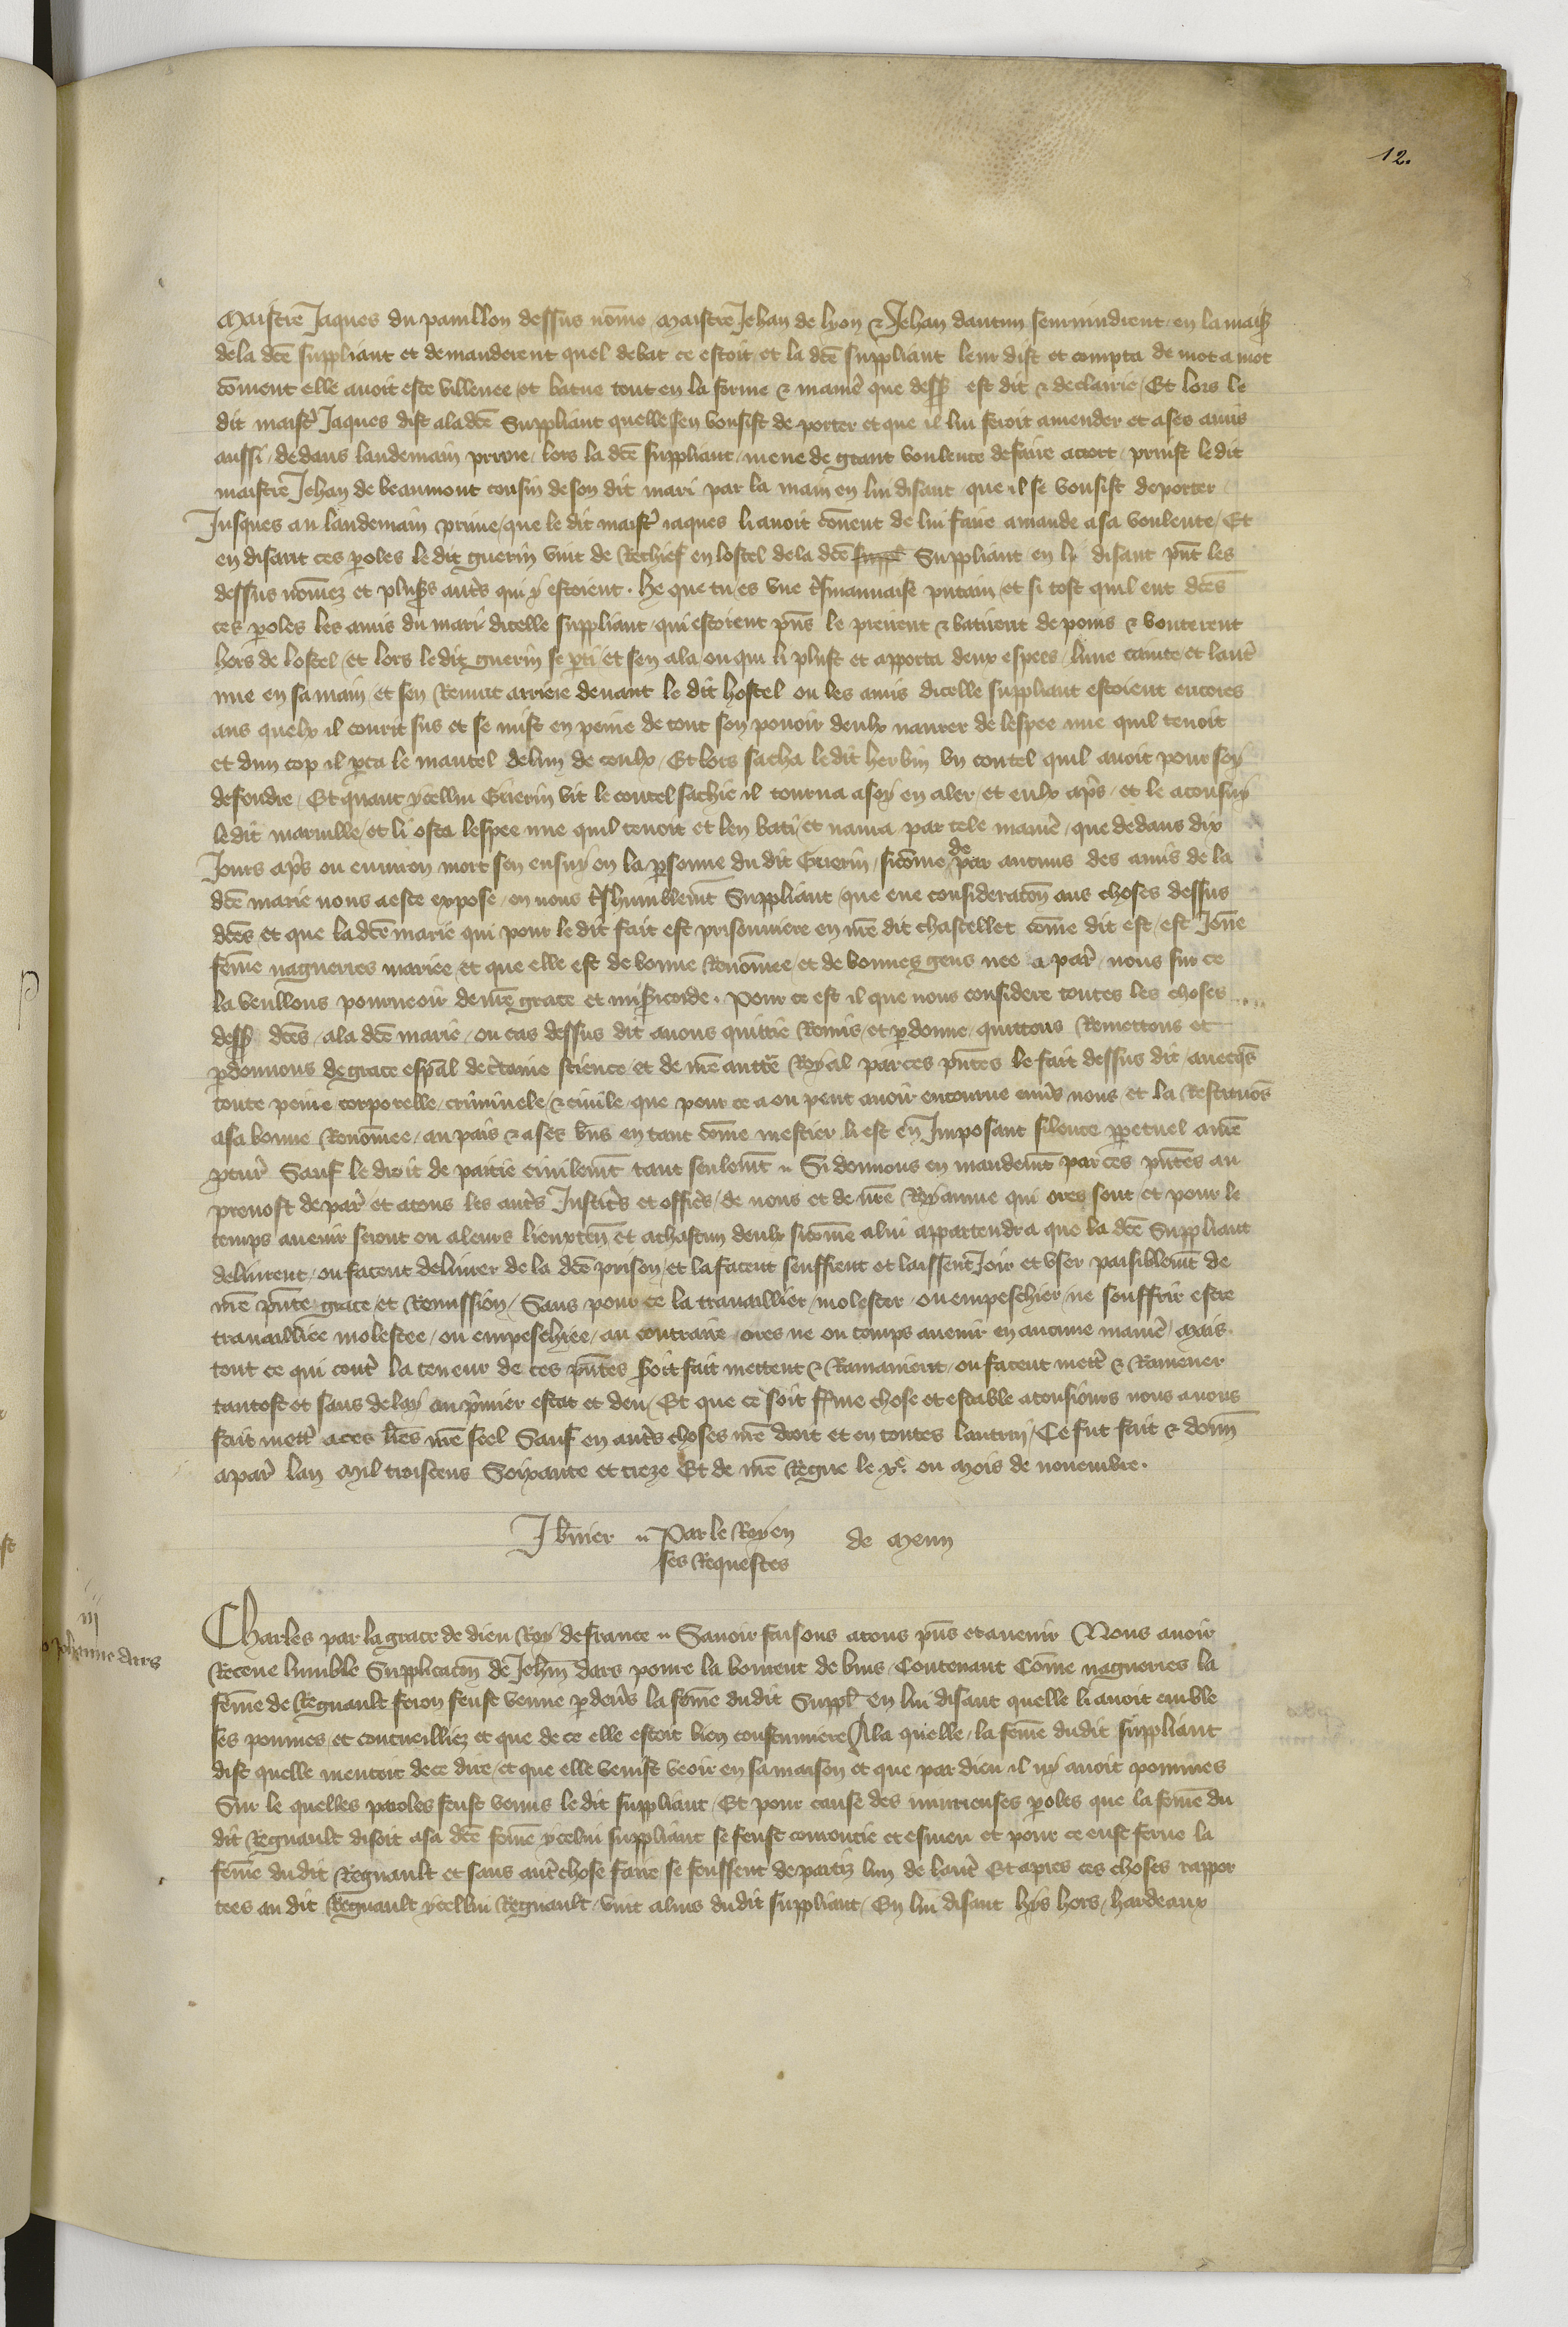 12.
Maistre Jaques du paullon dessus nōme maistre Jehan de lyon & Jehan dautun seurvindrent en la maisō
de la dcē suppliant et demanderent quel debat ce estoit et la dcē suppliant leur dist et compta de mot a mot
cōment elle avoit este villenee et batue tout en la forme & manie que dess est dit & declairie Et lors le
dit maist Jaques dist a la dcē Suppliant quelle sen vousist de porter et que il lui feroit amender et a ses amis
aussi dedans landemain prime lors la dcē suppliant mene de grant voulente de faire acort prinst le dit
maistre Jehan de beaumont cousin de son dit mari par la main en lui disant que il se vousist deporter
Jusques au landemain prime que le dit maist jaques li avoit cōvent de lui faire amande a sa voulente Et
en disant ces poles le dit guerin vint de Rechief en lostel de la dcē supp Suppliant en li disant pnt les
dessus nōmez et plusrs autrs qui y estoient . he que tu es une tsmauvaise putain et si tost quil eut dcēs
ces poles les amis du mari dicelle suppliant qui estoient pns le prirent & batirent de poins & bouterent
hors de lostel et lors le dit guerin se pti et sen ala ou qui li plust et apporta deux espees lune cainte et laut
nue en sa main et sen Revint arriere devant le dit hostel ou les amis dicelle suppliant estoient encores
aus quelx il courit sus et se mist en peine de tout son povoir deulx navrer de lespee nue quil tenoit
et dun cop il pca le mantel de lun de eoulx Et lors sacha le dit herbin un coutel quil avoit pour soy
defendre Et quant ycellui Guerin vit le coutel sachie il tourna a soy en aler et eulx aps et le aconsuy
le dit maruille et li osta lespee nue quil tenoit et len bati et navra par tele manie que dedans dix
Jours aps ou environ mort sen ensuy en la psonne du dit Guerin sicōme de par aucuns des amis de la
dcē marie nous a este expose en nous tshumblemt Suppliant que eue consideracōn aus choses dessus
dcēs et que la dcē marie qui pour le dit fait est prisonniere en nrē dit chastellet cōme dit est est Jōne
fēme nagueires mariee et que elle est de bonne Renōmee et de bonnes gens nee a par nous sur ce
la veullons pourveoir de nrē grace et misicorde . Pour ce est il que nous considere toutes les choses
dess dcēs a la dcē marie ou cas dessus dit avons quittie Remis et pdonne quittons Remettons et
pdonnons de grace espāl de ctaine science et de nrē auttē Royal par ces pntes le fait dessus dit avecqs
toute peine corporelle criminele & civile que pour ce a ou peut avoir encourue envs nous et la Restituōs
a sa bonne Renōmee au pais & a ses bns en tant cōme mestier li est en Jmposant silence ppetuel a nrē
pcur Sauf le droit de partie civilemt tant seulemt Si donnons en mandemt par ces pntes au
prevost de par et a tous les autrs Justicrs et officrs de nous et de nrē Royaume qui ores sont et pour le
temps avenir seront ou a leurs lieuxten et a chascun deulx sicōme a lui appartendra que la dcē Suppliant
delivrent ou facent delivrer de la dcē prison et la facent seuffrent et laissent Joir et user paisiblemt de
nrē pnte grace et Remission Sans pour ce la travaillier molester ou empeschier ne souffrir estre
travailliee molestee ou empeschiee au contraire ores ne ou temps avenir en aucune manie Mais
tout ce qui cont la teneur de ces pntes soit fait mettent & Ramainent ou facent mett & Ramener
tantost et sans delay au pmier estat et deu Et que ce soit ffme chose et estable a tousiours nous avons
fait mett a ces lres nrē seel Sauf en autrs choses nrē droit et en toutes lautruy Ce fut fait & donn
a par lan Mil troiscens Soixante et treze Et de nrē Regne le xe. ou Mois de novembre .
Par le Roy en de Meun
ses Requestes
iij
Charles par la grace de dieu Roy de france Savoir faisons a tous pns et avenir Nous avoir
Receue lumble Supplicacōn de Jehan dars povre laboureur de bras Contenant Cōme nagueires la
fēme de Regnault feron feust venue pdevs la fēme du dit Suppl en lui disant quelle li avoit emble
ses pommes et concueilliez et que de ce elle estoit bien coustumiere A la quelle la fēme du dit suppliant
dist quelle mentoit de ce dire et que elle venist veoir en sa maison et que par dieu il ny avoit pommes
Sur le quelles paroles feust venus le dit suppliant Et pour cause des iniurieuses poles que la fēme du
dit Regnault disoit a sa dcē fēme ycelui suppliant se feust courroucie et esmeu et pour ce eust ferue la
fēme du dit Regnault et sans aut chose faire se feussent departiz lun de laut Et apres ces choses rappor
tees au dit Regnault ycellui Regnault vint a luis du dit suppliant En lui disant hors hardeaux